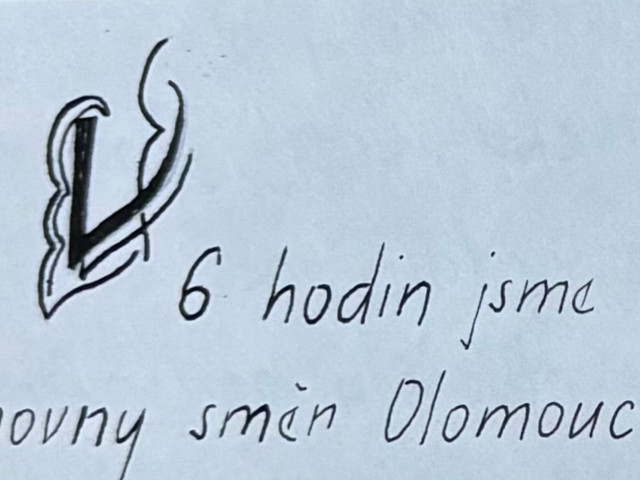 V 6 hodin jsme
ovny směr Olomouc